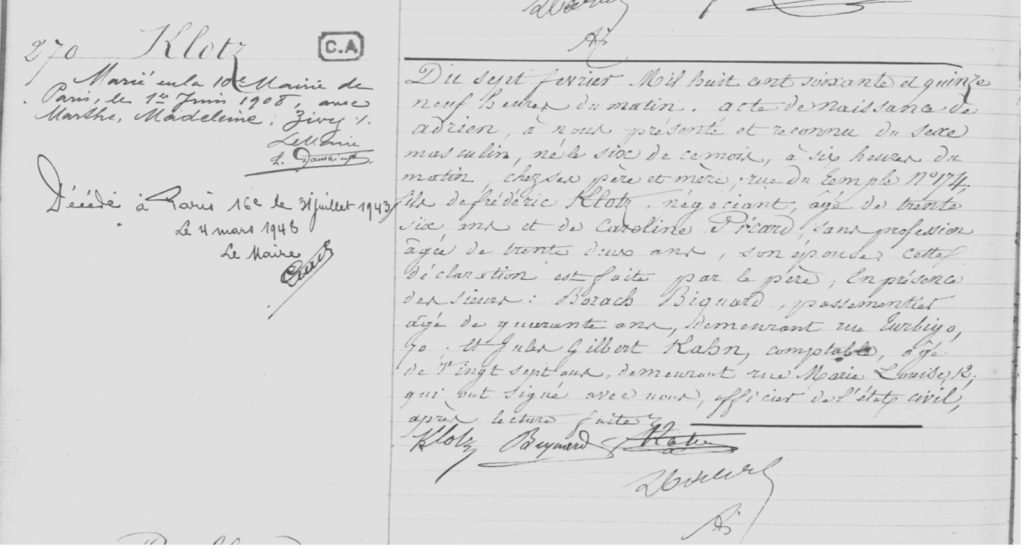 270 Klotz
C.A
Marié en la 10e Mairie de
Paris, le 1er Juin 1908, avec
Marthe, Madeleine, Zivy /.
Le Maire
Décédé à Paris 16e le 31 juillet 1943
Le 4 mars 1948
Le Maire
Du sept fevrier Mil huit cent soixante et quinze
neuf heures du matin. acte de naissance de
adrien, à nous présenté et reconnu du sexe
masculin, né le six de ce mois, à six heures du
matin, chez ses père et mère, rue du Temple No 174,
fils de frédéric Klotz, négociant, agé de trente
six ans et de Caroline Picard, sans profession
âgée de trente deux ans, son épouse; cette
déclaration est faite par le père; En présence
des sieurs: Borach Biguard, passementier
âgé de quarante ans, demeurant rue Turbigo,
70. et Jules Gilbert Kahn, comptable, âgé
de vingt sept ans, demeurant rue Marie Louise,
qui ont signé avec nous, officier de l'état civil,
après lecture faite
Klotz